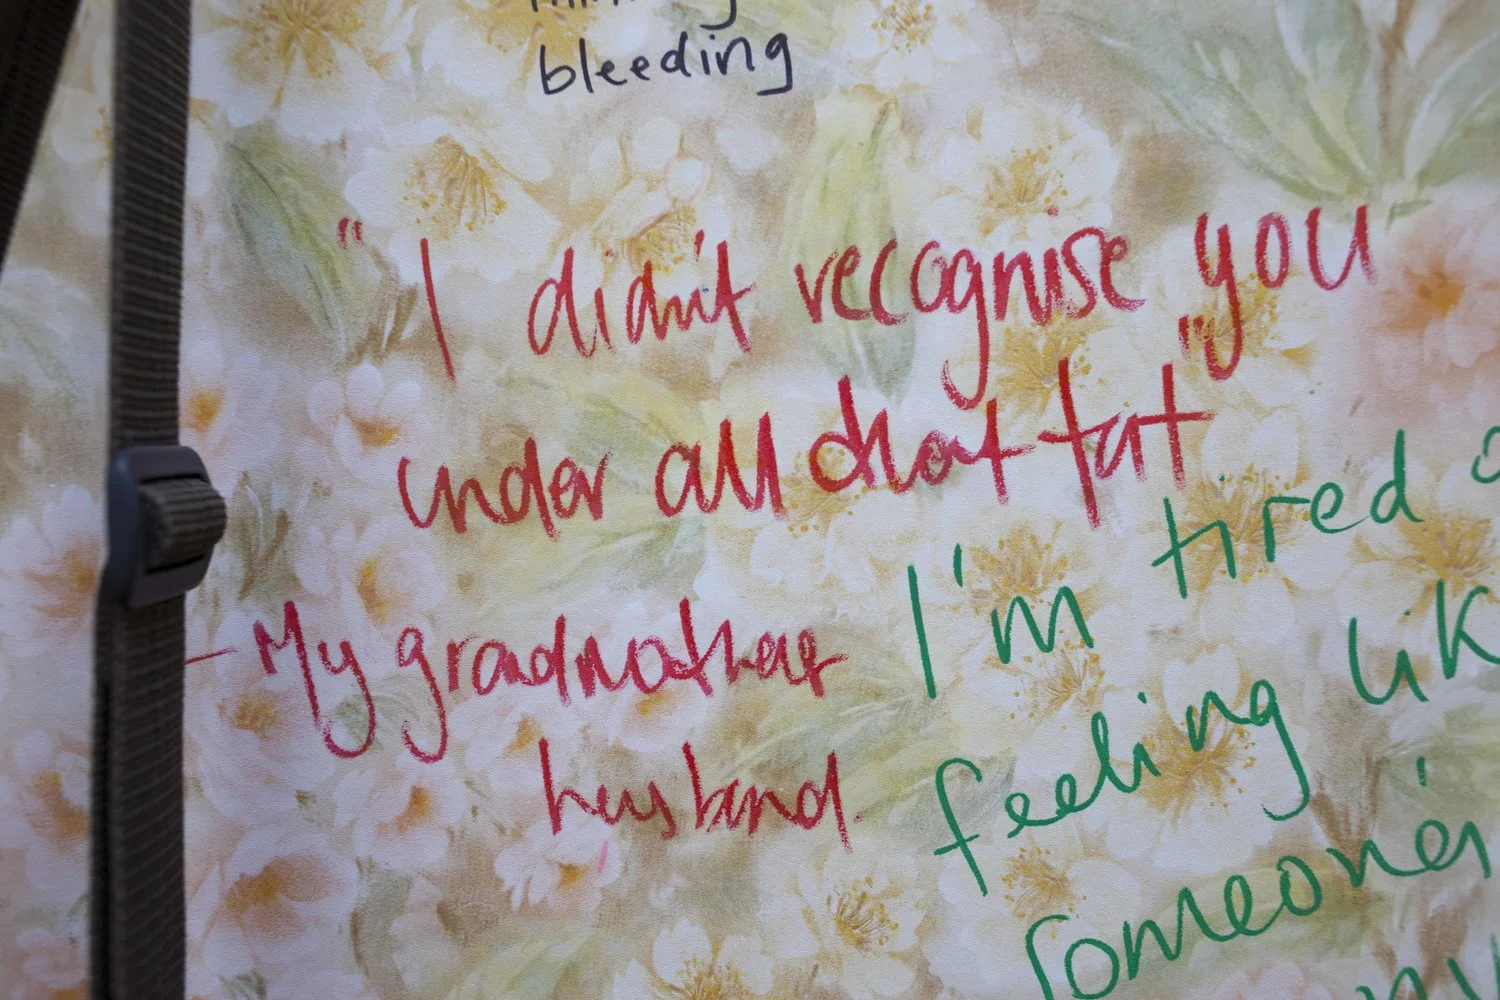 bleeding
"I didn't recognise you
under all that fat"
- My gradmothers
husband.
I'm tired
feeling lik
someone'